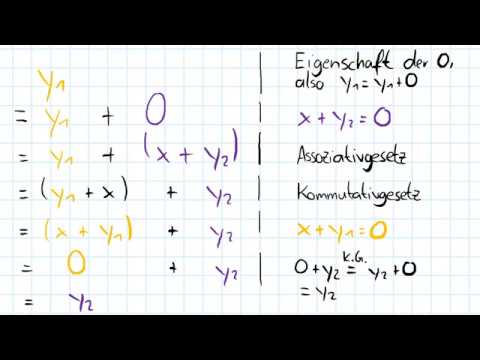 y₁
= y₁ + 0
= y₁ + (x + y₂)
= (y₁ + x) + y₂
= (x + y₁) + y₂
= 0 + y₂
= y₂
Eigenschaft der 0,
also y₁ = y₁ + 0
x + y₂ = 0
Assoziativgesetz
Kommutativgesetz
x + y₁ = 0
K.G.
0 + y₂ = y₂ + 0
= y₂